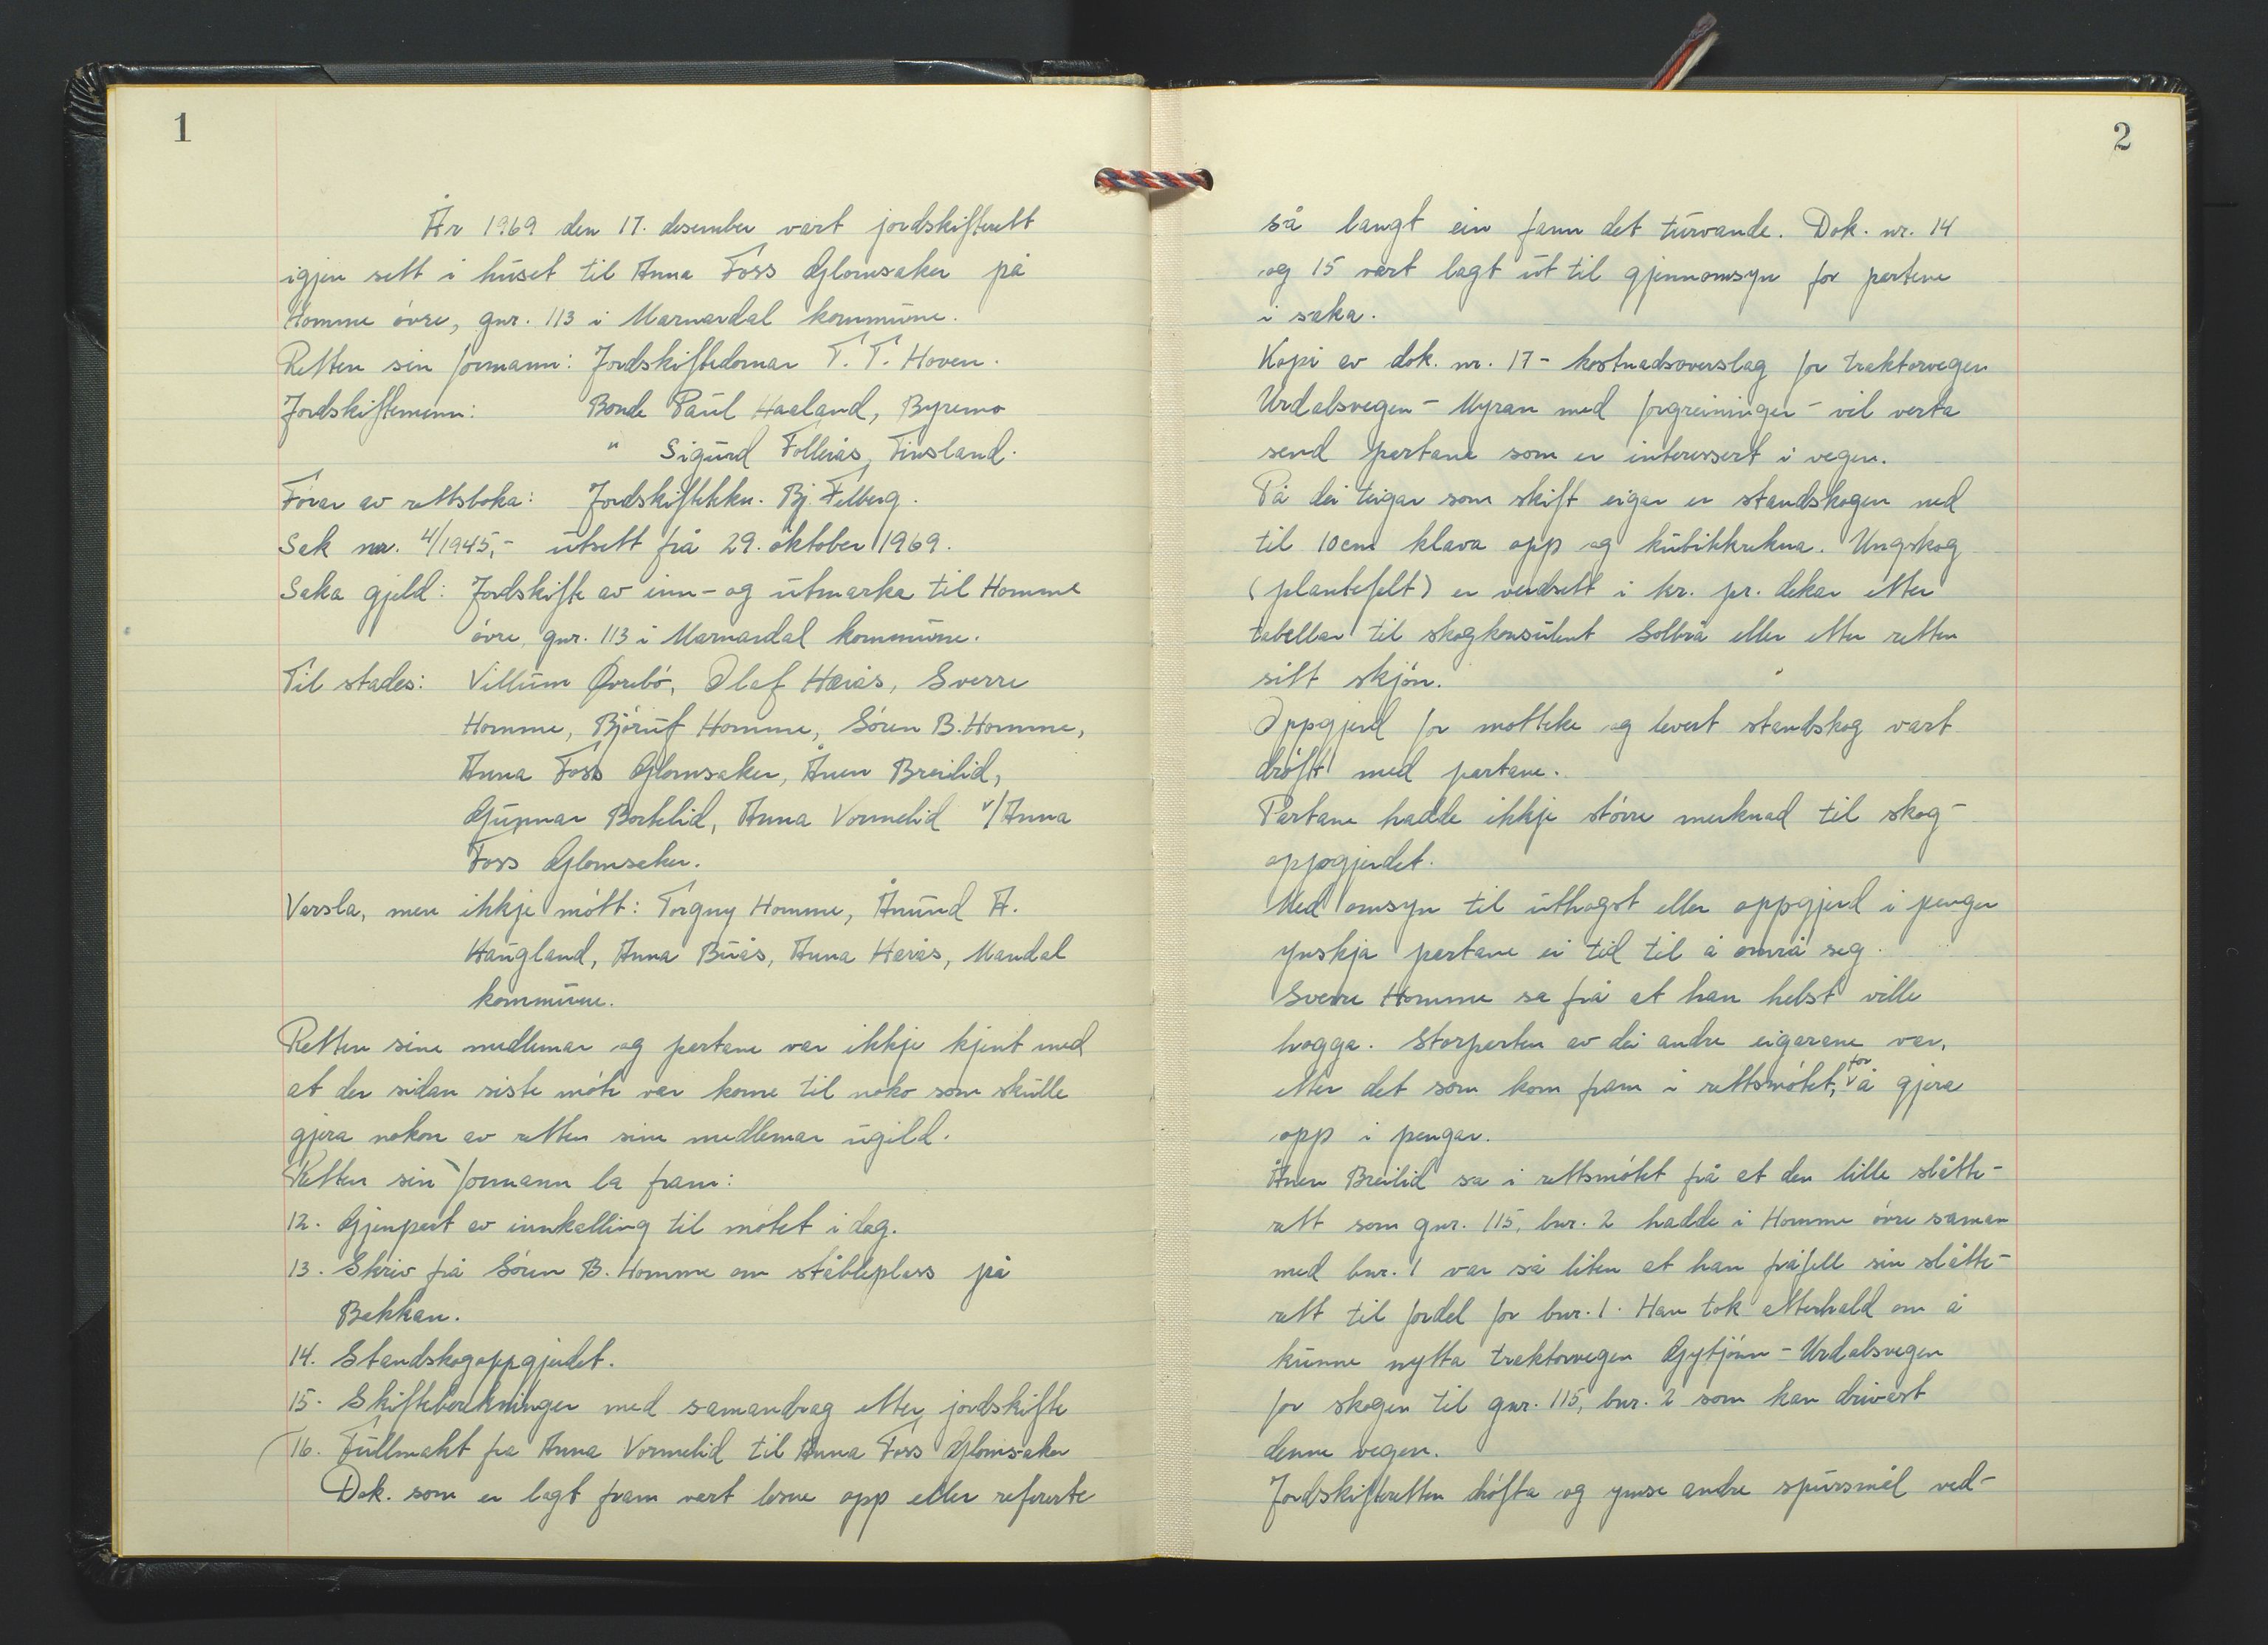 1
År 1969 den 17. desember vart jordskifterett
igjen sett i huset til Anna Foss Glomsaker på
Homme øvre, gnr. 113 i Marnardal kommune.
Retten sin formann: Jordskiftedomar T. T. Hoven.
Jordskiftemenn: Bonde Paul Haaland, Byremo
" Sigurd Follerås, Finsland.
Førar av rettsboka: Jordskiftekku. Bj. Felberg.
Sak nr. 4/1945,- utsett frå 29. oktober 1969.
Saka gjeld: Jordskifte av inn- og utmarka til Homme
øvre, gnr. 113 i Marnardal kommune.
Til stades: Villum Øvrebø, Olaf Høiås, Sverre
Homme, Bjørulf Homme, Søren B. Homme,
Anna Foss Glomsaker, Ånen Breilid,
Gunnar Bortelid, Anna Vormelid v/Anna
Foss Glomsaker.
Varsla, men ikkje møtt: Torgny Homme, Ånund A.
Haugland, Anna Buås, Anna Høiås, Mandal
kommune.
Retten sine medlemar og partane var ikkje kjent med
at der sidan siste møte var kome til noko som skulle
gjera nokon av retten sine medlemar ugild.
Retten sin formann la fram:
12. Gjenpart av innkalling til møtet i dag.
13. Skriv frå Søren B. Homme om ståbleplass på
Bekkan.
14. Standskogoppgjerdet.
15. Skifteberekninger med samandrag etter jordskifte
16. Fullmakt fra Anna Vormelid til Anna Foss Glomsaker
Dok. som er lagt fram vart lesne opp eller refererte
2
så langt ein fann det turvande. Dok. nr. 14
og 15 vart lagt ut til gjennomsyn for partene
i saka.
Kopi av dok. nr. 17 - kostnadsoverslag for traktorvegen
Urdalsvegen - Myran med forgreininger - vil verta
send partane som er interessert i vegen.
På dei teigar som skift eigar er standskogen ned
til 10 cm klava opp og kubikkrekna. Ungskog
(plantefelt) er verdsett i kr. pr. dekar etter
tabellar til skogkonsulent Solbrå eller etter retten
sitt skjøn.
Oppgjerd for motteke og levert standskog vart
drøft med partane.
Partane hadde ikkje større merknad til skog-
oppgjerdet.
Med omsyn til uthogst eller oppgjerd i pengar
ynskja partane ei tid til å områ seg.
Sverre Homme sa frå at han helst ville
hogga. Storparten av dei andre eigarane var,
etter det som kom fram i rettsmøtet, for å gjera
opp i pengar.
Ånen Breilid sa i rettsmøtet frå at den lille slåtte-
rett som gnr. 115, bnr. 2 hadde i Homme øvre saman
med bnr. 1 var så liten at han fråfell sin slåtte-
rett til fordel for bnr. 1. Han tok atterhald om å
kunne nytta traktorvegen Gytjønn - Urdalsvegen
for skogen til gnr. 115, bnr. 2 som kan drivast
denne vegen.
Jordskifteretten drøfta og ymse andre spursmål ved-